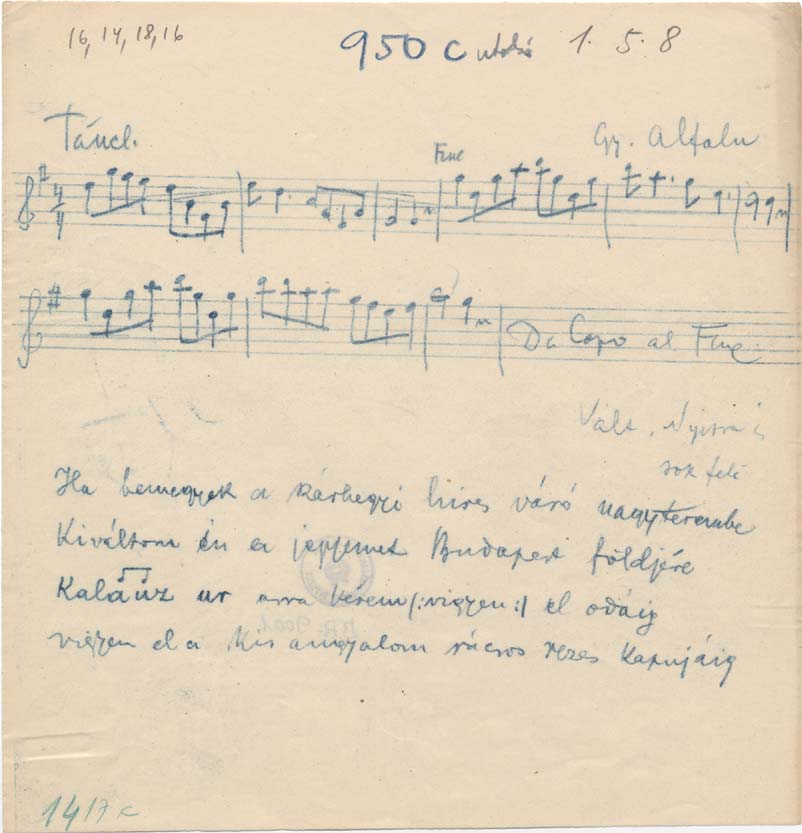 16, 14, 18, 16
950 c utolsó 1. 5. 8
Táncl.
Gy. Alfalu
Fine
4/4
Da Capo al Fine.
Vált. Nyitra
sok felé
Ha bemegyek a híres váró nagyterembe
Kiváltom én a jegyemet Budapest földjére
Kalaúz ur arra kérem /:vigyen:/ el odáig
vigyen el a kis angyalom rácsos rezes kapujáig
1417 c